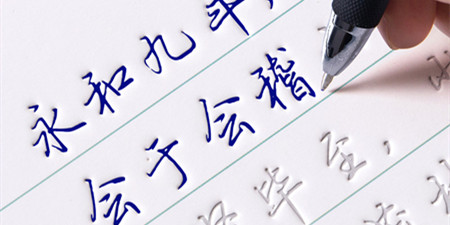 永和九年
会于会稽
毕至，